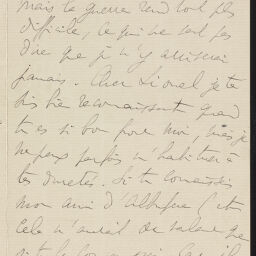 mais la guerre rend tout plus
difficile, ce qui ne veut pas
dire que je n'y arriverai
jamais. Cher Lionel je te
suis très reconnaissant quand
tu es si bon pour moi, mais je
ne peux parfois m'habituer à
tes duretés. Si tu connaissais
mon ami d'Albufera (et
cela n'aurait de valeur que